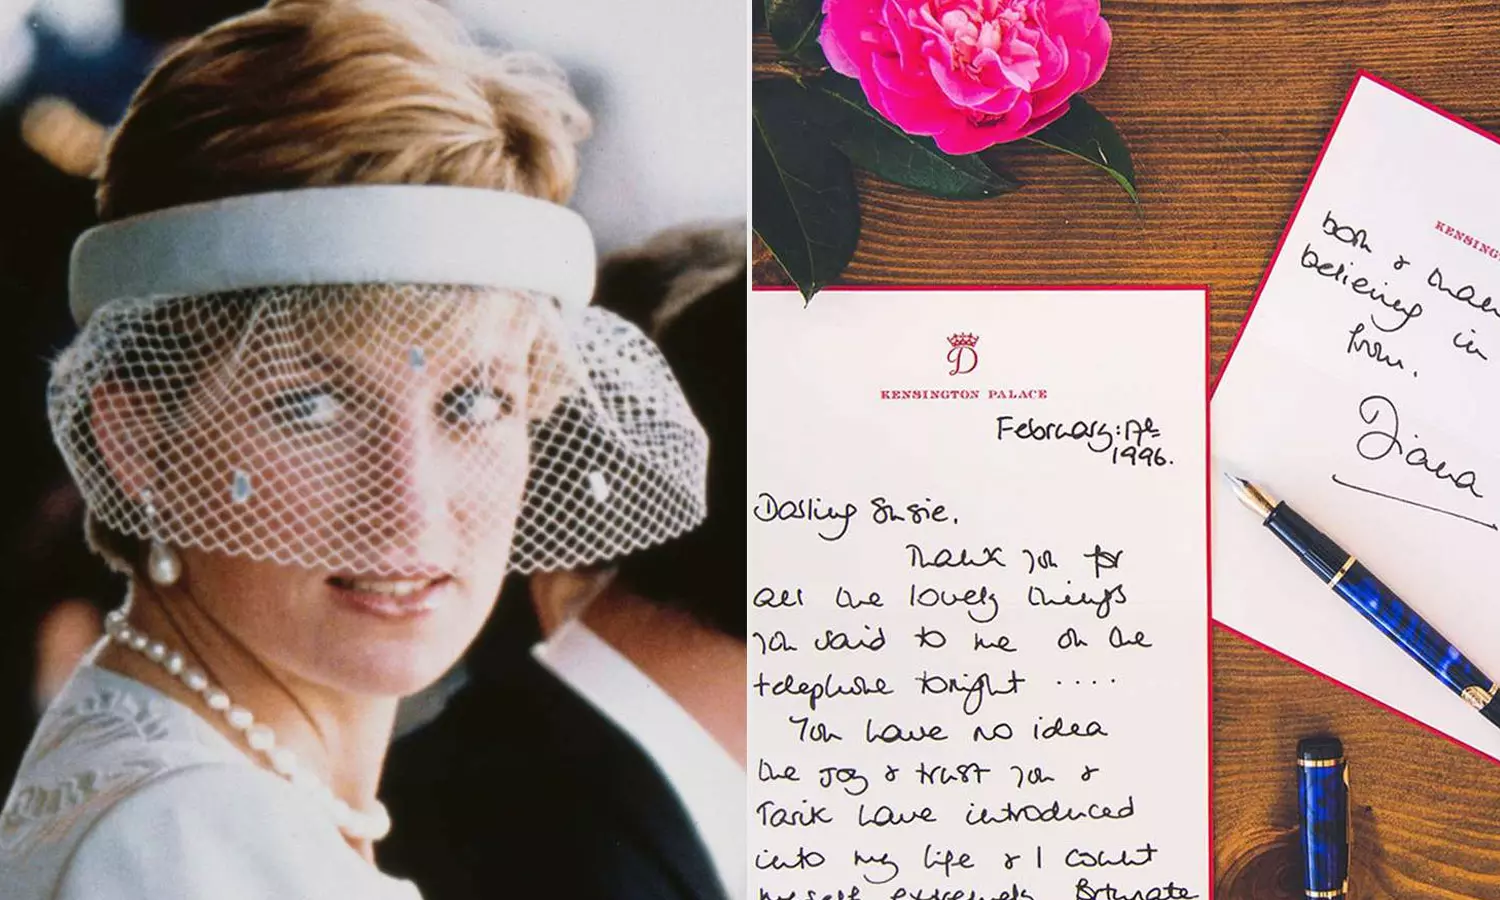 D
KENSINGTON PALACE
February: 17th
1996.
Darling Susie,
Thank you for
all the lovely things
you said to me on the
telephone tonight ....
You have no idea
the joy & trust you &
Tarik have introduced
into my life & I count
myself extremely fortunate
KENSING
both &
believing in
from.
Diana